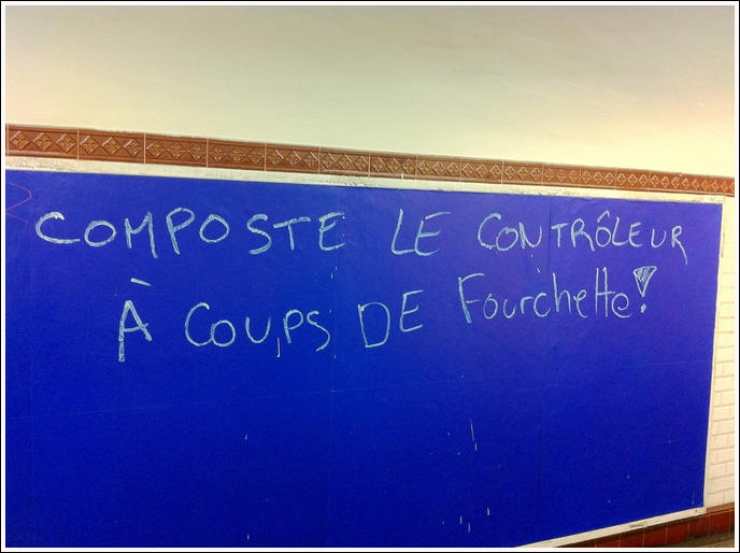 COMPOSTE LE CONTRÔLEUR
À COUPS DE FOURCHETTE!